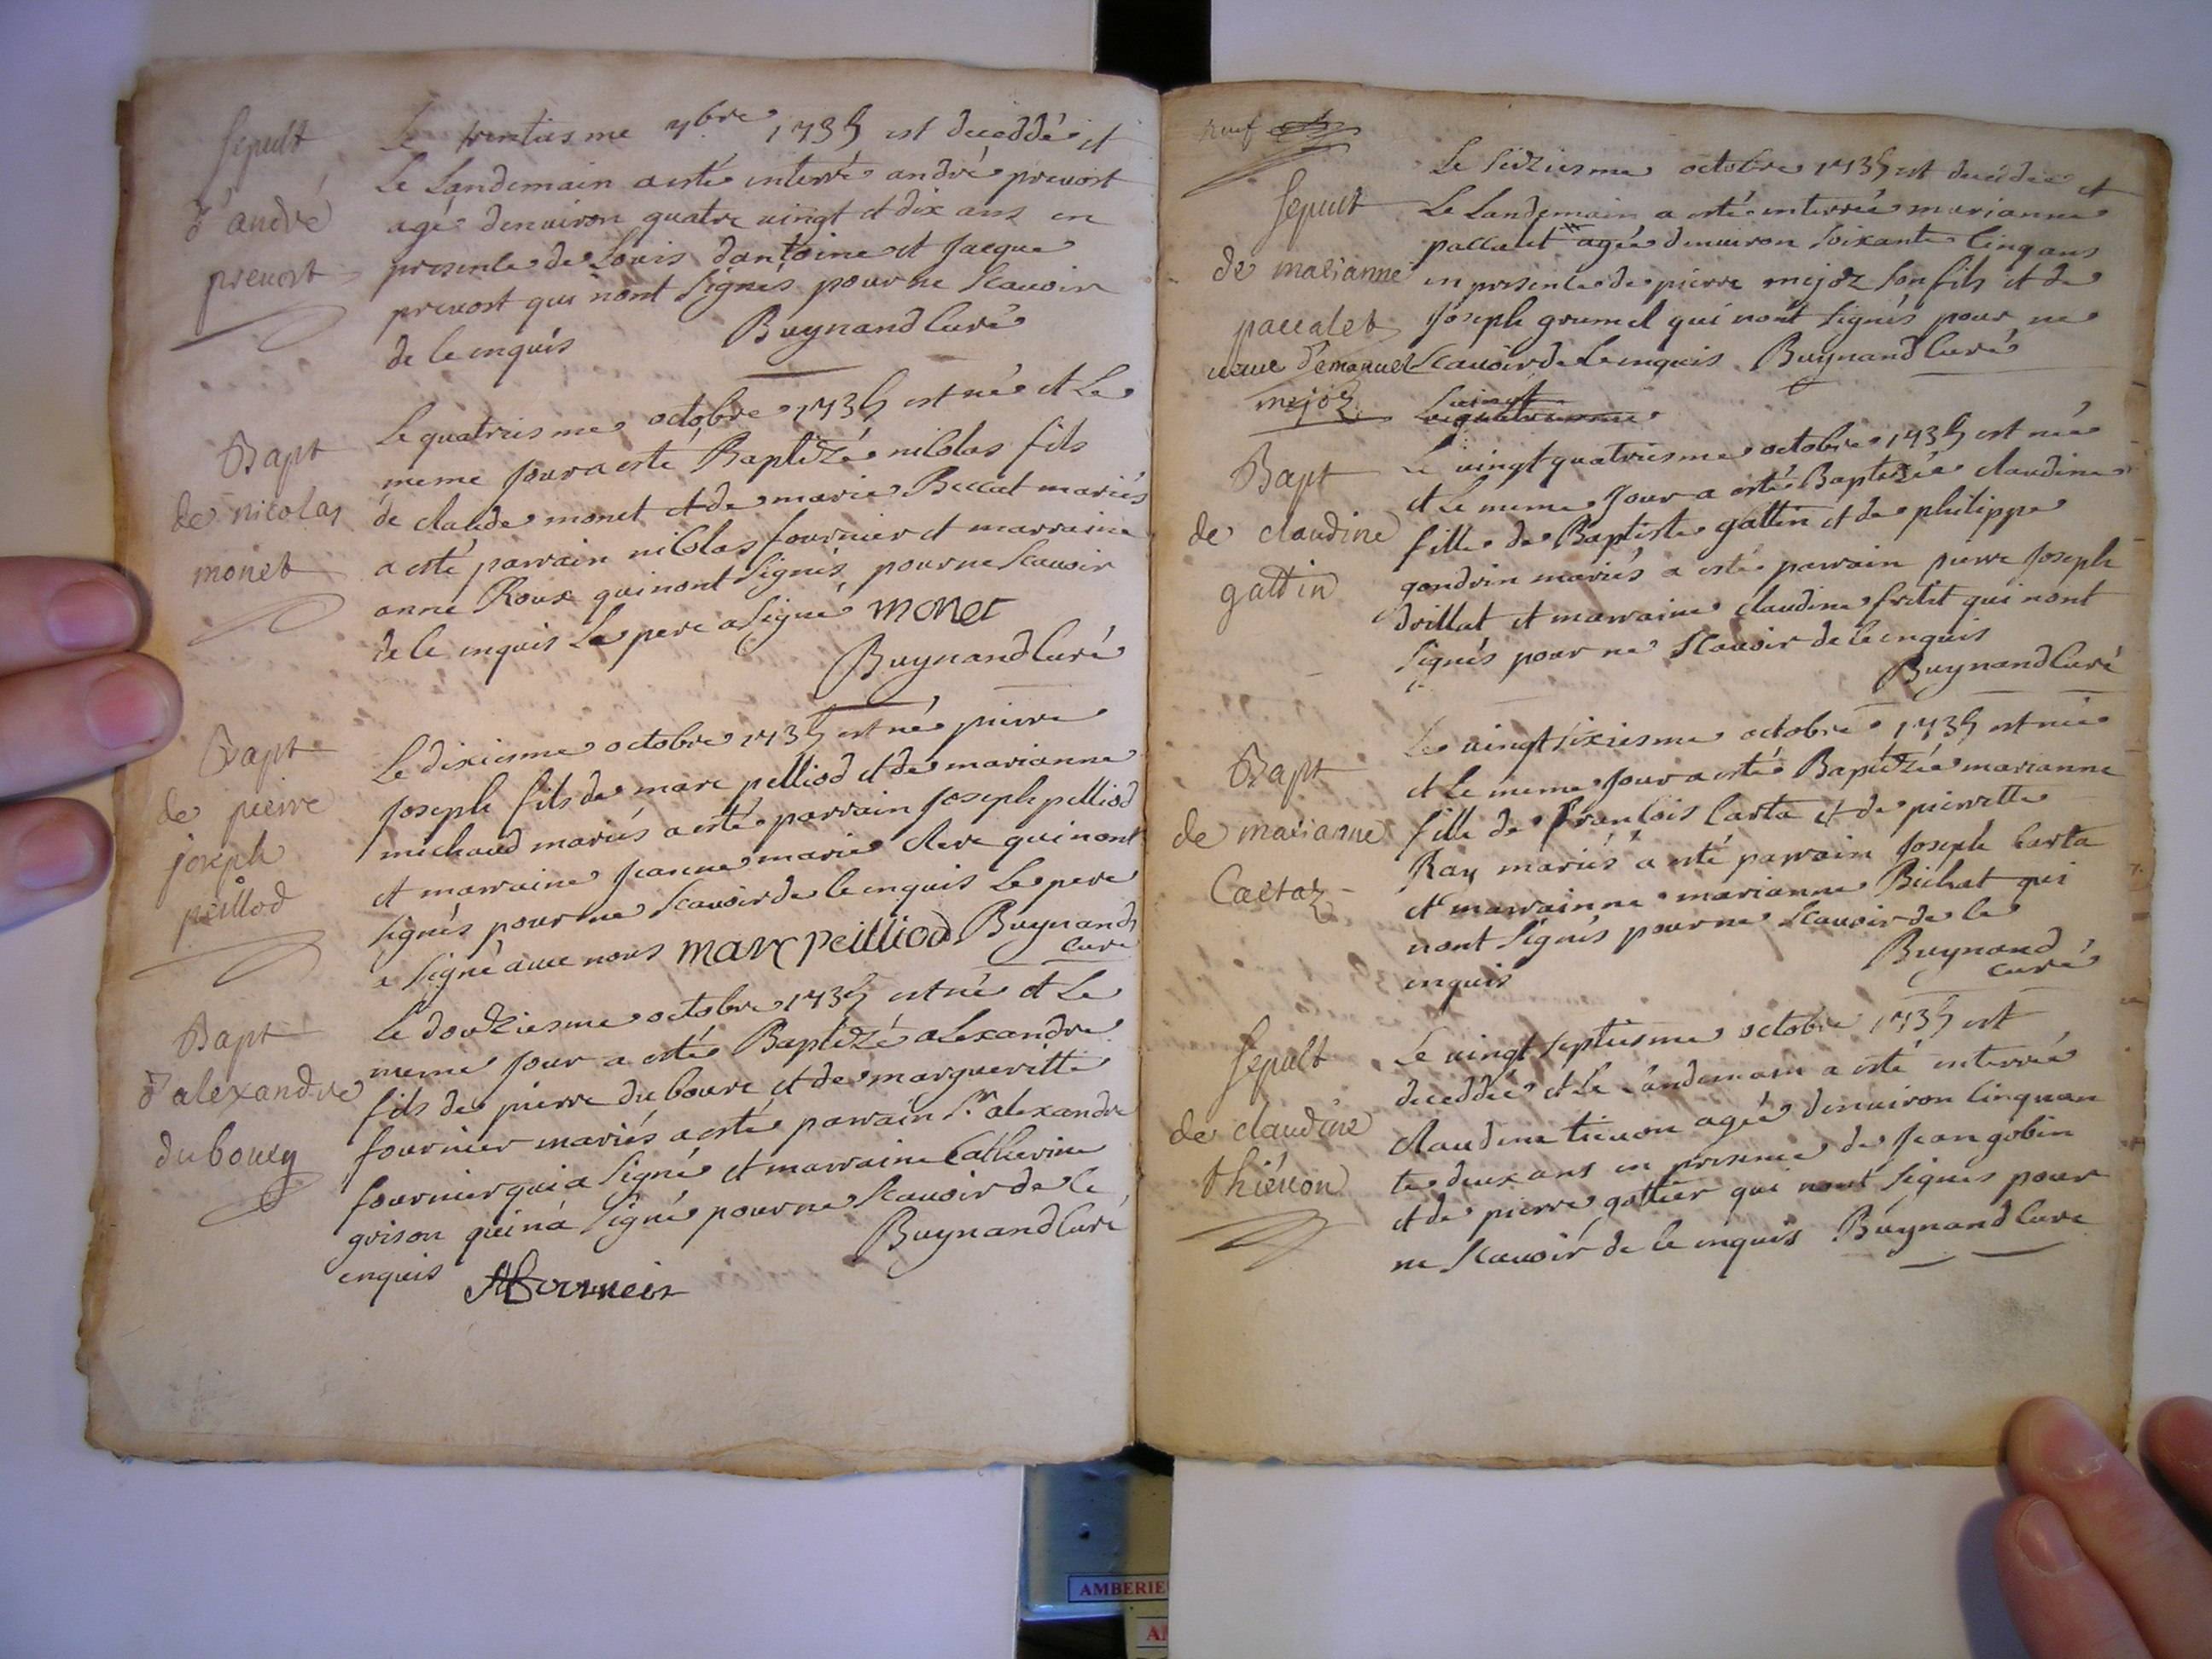 Sepult
d'andré
prevost
Le trentiesme 7bre 1735 est deceddé et
Le Landemain a esté enterré andré prevost
agé denuiron quatre uingt et dix ans en
presence de Louis dantoine et Jacque
prevost qui nont signés pour ne scauoir
de ce enquis Buynand Curé
Bapt
de nicolas
monet
Le quatriesme octobre 1735 est né et Le
meme jour a esté Baptizé nicolas fils
de claude monet et de marie Beccat mariés
a esté parrain nicolas fournier et marraine
anne Roux qui nont signés pour ne scauoir
de ce enquis Le pere a signé monet
Buynand Curé
Bapt
de pierre
joseph
peillod
Le dixiesme octobre 1735 est né pierre
joseph fils de marc pelliod et de marianne
michaud mariés a esté parrain joseph pelliod
et marraine jeanne marie clerc qui nont
signés pour ne scauoir de ce enquis Le pere
a signé auec nous marc peilliod Buynand
curé
Bapt
d'alexandre
dubourg
Le doudziesme octobre 1735 est né et Le
meme jour a esté Baptizé alexandre
fils de pierre du bourc et de margueritte
fournier mariés a esté parrain Sr alexandre
fournier qui a signé et marraine Catherine
grison qui na signé pour ne scauoir de ce
enquis Buynand Curé
neuf
Sepult
de marianne
paccalet
ueuue d'emanuel
mejoz
Le sidziesme octobre 1735 est decedée et
Le Landemain a esté enterrée marianne
paccalet agée denuiron soixante cinq ans
en presence de pierre mejoz son fils et de
joseph grumel qui nont signés pour ne
scauoir de ce enquis Buynand Curé
Bapt
de claudine
gattin
Le uingt quatriesme octobre 1735 est née
et Le meme jour a esté Baptizée claudine
fille de Baptiste gattin et de philippe
gondrin mariés a esté parrain pierre joseph
drillat et marraine claudine fritit qui nont
signés pour ne scauoir de ce enquis
Buynand Curé
Bapt
de marianne
Cartaz
Le uingt sixiesme octobre 1735 est née
et Le meme jour a esté Baptizée marianne
fille de francois Carta et de pierrette
Ray mariés a esté parrain joseph Carta
et marrainne marianne Bichat qui
nont signés pour ne scauoir de ce
enquis Buynand
curé
Sepult
de claudine
thiéuon
Le uingt septiesme octobre 1735 est
deceddée et Le Landemain a esté enterrée
claudine tieuon agée denuiron cinquan
te deux ans en presence de jean gobin
et de pierre gottier qui nont signés pour
ne scauoir de ce enquis Buynand Curé
AMBERIE